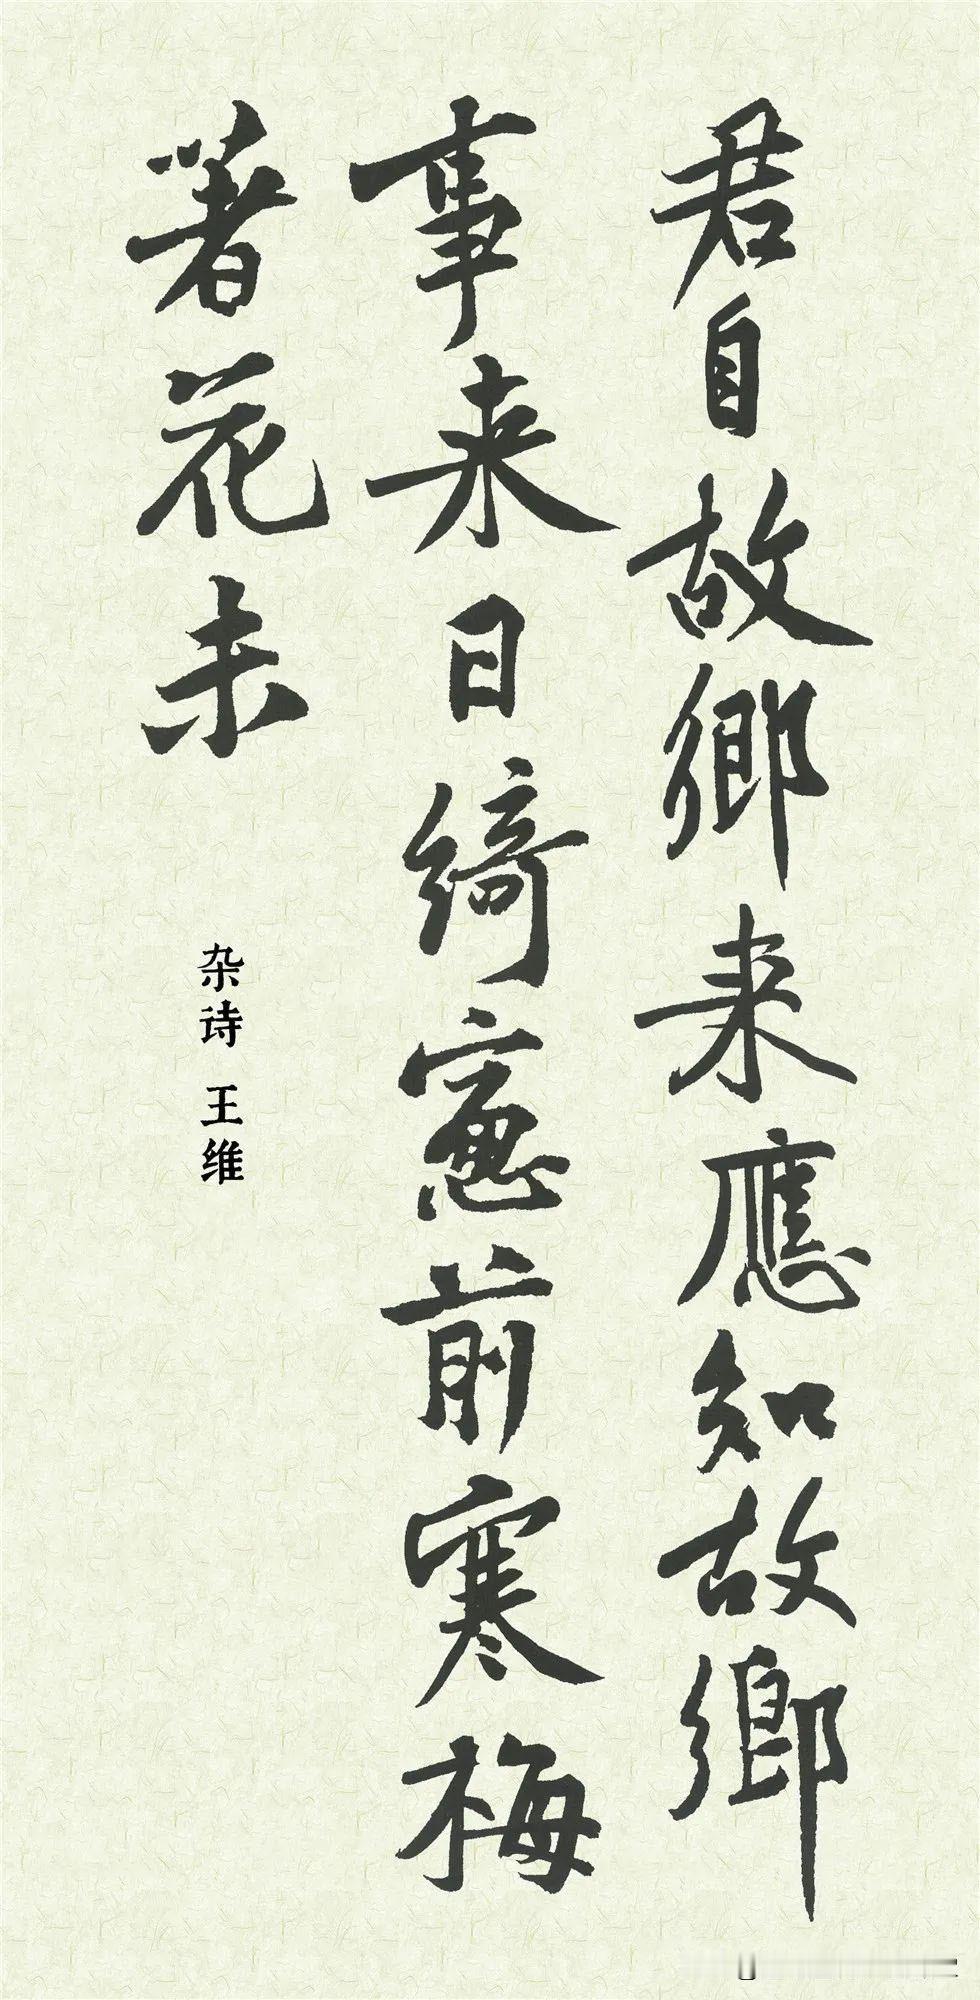 君自故鄉来應知故鄉
事来日綺窻前寒梅
著花未
杂诗 王维